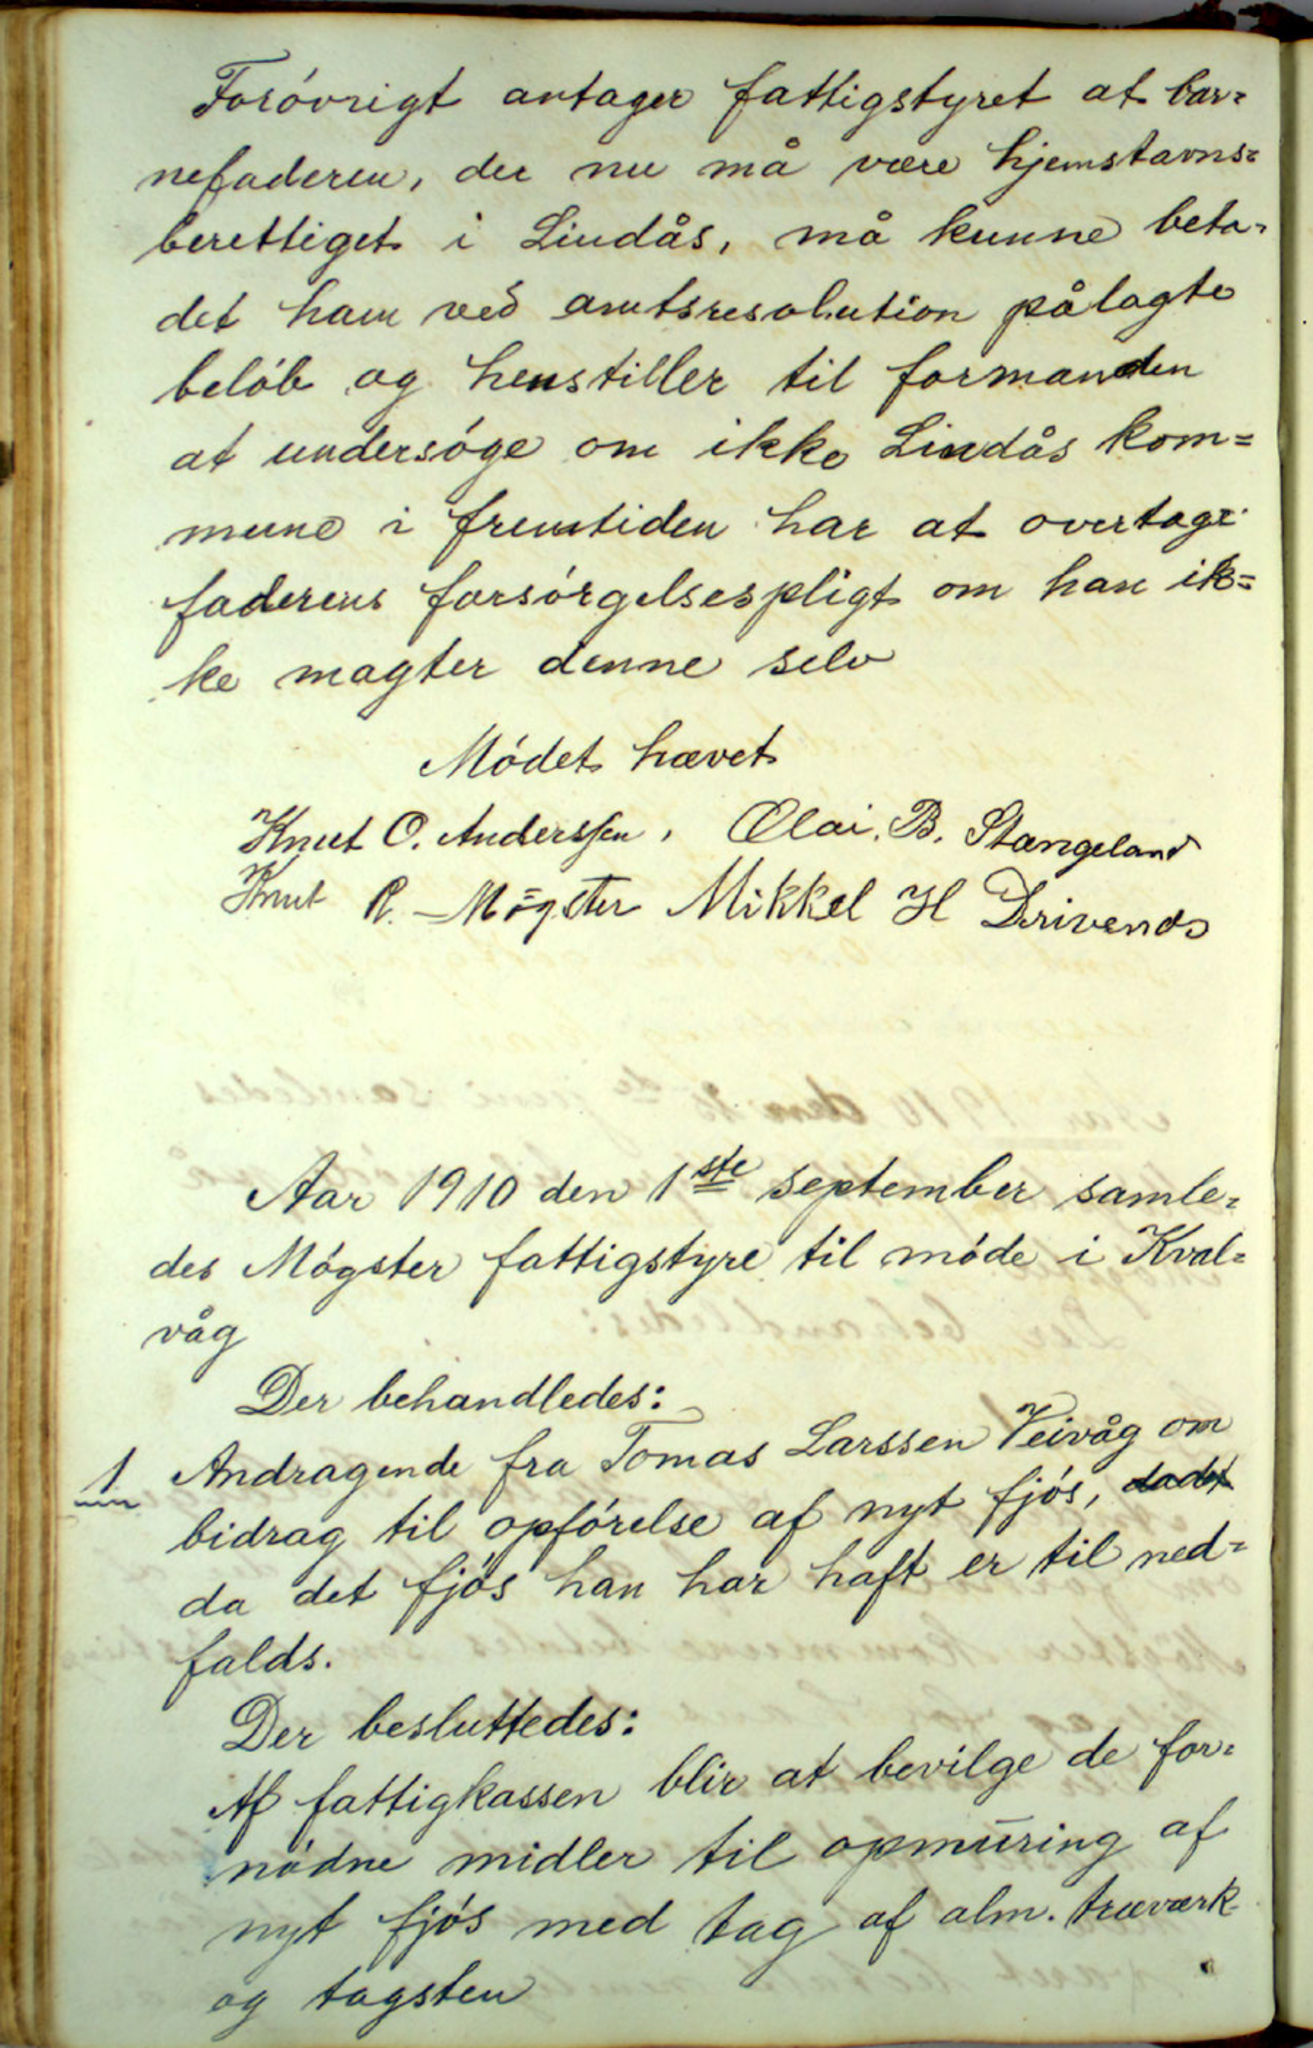 Forövrigt antager fattigstyret at bar=
nefaderen, der nu må være hjemstavns=
berettiget i Lindås, må kunne beta=
det ham ved amtsresolution pålagte
beløb og henstiller til formanden
at undersøge om ikke Lindås kom=
mune i fremtiden har at overtage
faderens forsørgelsespligt om han ik=
ke magter denne selv
Mødet hævet
Knut O. Anderssen, Olai. B. Stangeland
Knut R. Møgster Mikkel H Drivenes
Aar 1910 den 1ste september samle=
des Møgster fattigstyre til møde i Kval=
våg
Der behandledes:
1 Andragende fra Tomas Larssen Veivåg om
bidrag til opførelse af nyt fjøs, dadet
da det fjøs han har haft er til ned=
falds.
Der besluttedes:
Af fattigkassen blir at bevilge de for=
nødne midler til opmuring af
nyt fjøs med tag af alm. træværk
og tagsten